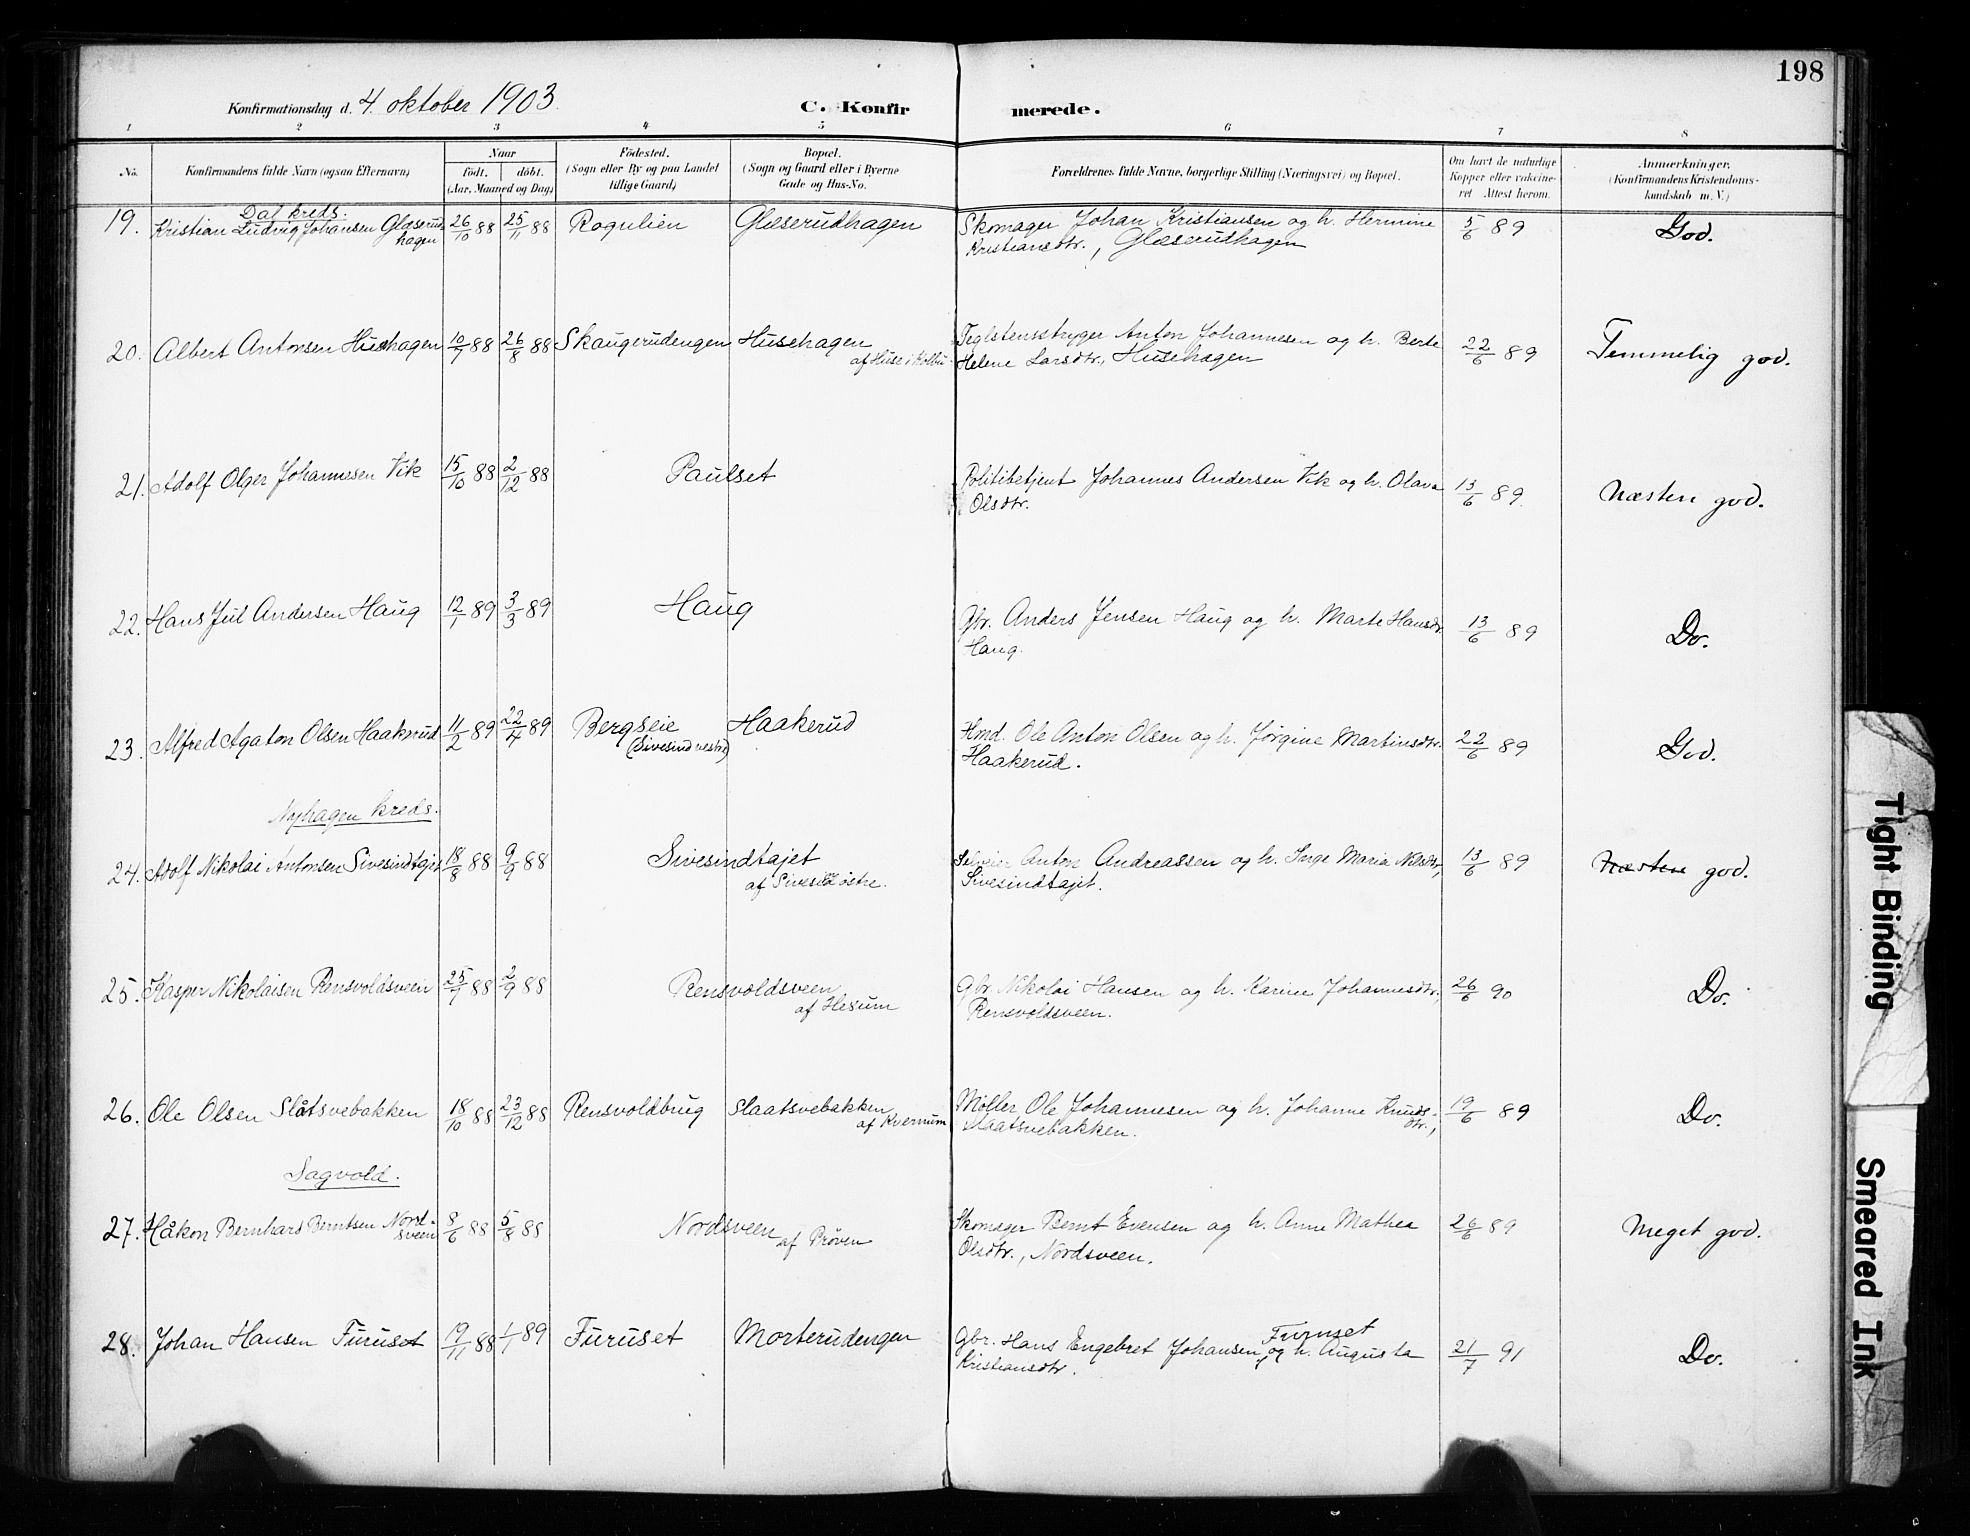 198
Konfirmationsdag d. 4. oktober 1903. C. Konfir merede.
1 2 3 4 5 6 7 8
No. Konfirmandens fulde Navn (ogsaa Efternavn) Naar födt. döbt. (Aar, Maaned og Dag) Födested. (Sogn eller By og paa Landet tillige Gaard) Bopæl. (Sogn og Gaard eller i Byerne Gade og Hus-No. Forældrenes fulde Navne, borgerlige Stilling (Næringsvei) og Bopæl. Om havt de naturlige Kopper eller vakcineret Attest herom. Anmerkninger. (Konfirmandens Kristendomskundskab m. V.)
Dal kreds.
19. Kristian Ludvig Johansen Glæserud- 26/10 88 25/11 88 Rognlien Glæserudhagen Skomager Johan Kristiansen og h. Hermine 5/6 89 God.
hagen Kristiansdtr., Glæserudhagen
20. Albert Antonsen Husehagen 10/7 88 26/8 88 Skaugerudengen Husehagen Teglstensstryger Anton Johannesen og h. Berte 22/6 89 Temmelig god.
af Huse i Kolbu Helene Larsdtr., Husehagen
21. Adolf Olger Johannesen Vik 15/10 88 2/12 88 Paulset Politibetjent Johannes Andersen Vik og h. Olava 13/6 89 Næsten god.
Olsdtr.
22. Hans Jul Andersen Haug 12/1 89 3/3 89 Haug Gbr. Anders Jensen Haug og h. Marte Hansdtr. 13/6 89 Do.
Haug.
23. Alfred Agaton Olsen Haakerud 11/2 89 22/4 89 Bergseie Haakerud Hmd. Ole Anton Olsen og h. Jørgine Martinsdtr. 22/6 89 God.
(Sivesind vestre) Haakerud.
Nyhagen kreds.
24. Adolf Nikolai Antonsen Sivesindtajet 18/8 88 9/9 88 Sivesindtajet Anton Andreassen og h. Inge Maria Nilsdtr, 13/6 89 Næsten god.
af Sivesind østre. Sivesindtajet.
25. Kasper Nikolaisen Rensvoldsveen 25/7 88 2/9 88 Rensvoldsveen Gbr Nikolai Hansen og h. Karine Johannesdtr. 26/6 90 Do.
af Hesum Rensvoldsveen.
26. Ole Olsen Slåtsvebakken 18/10 88 23/12 88 Rensvoldbrug Slaatsvebakken Møller Ole Johannesen og h. Johanne Knuds- 19/6 89 Do.
af Kvernum dtr., Slaatsvebakken.
Sagvold.
27. Håkon Bernhard Berntsen Nord- 8/6 88 5/8 88 Nordsveen Skomager Bernt Evensen og h. Anne Mathea 26/6 89 Meget god.
sveen af Prøven Olsdtr., Nordsveen.
28. Johan Hansen Furuset 19/11 88 1/1 89 Furuset Morterudengen Gbr. Hans Engebret Johansen Furuset, og h. Augusta 21/7 91 Do.
Kristiansdtr.
Tight Binding
Smeared Ink